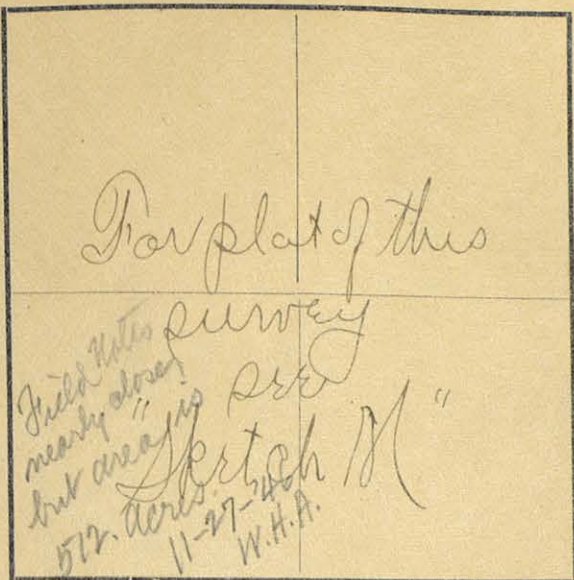 For plat of this
survey
see
"Sketch M"
Field Notes
nearly close,
but area is
512. acres.
11-27-'40
W.H.A.